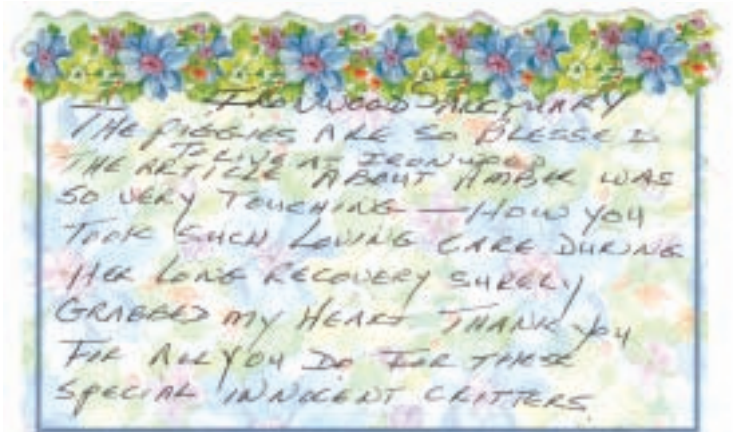 IRONWOOD SANCTUARY
THE PIGGIES ARE SO BLESSED
TO LIVE AT IRONWOOD
THE ARTICLE ABOUT AMBER WAS
SO VERY TOUCHING — HOW YOU
TOOK SUCH LOVING CARE DURING
HER LONG RECOVERY SURELY
GRABBED MY HEART THANK YOU
FOR ALL YOU DO FOR THESE
SPECIAL INNOCENT CRITTERS.